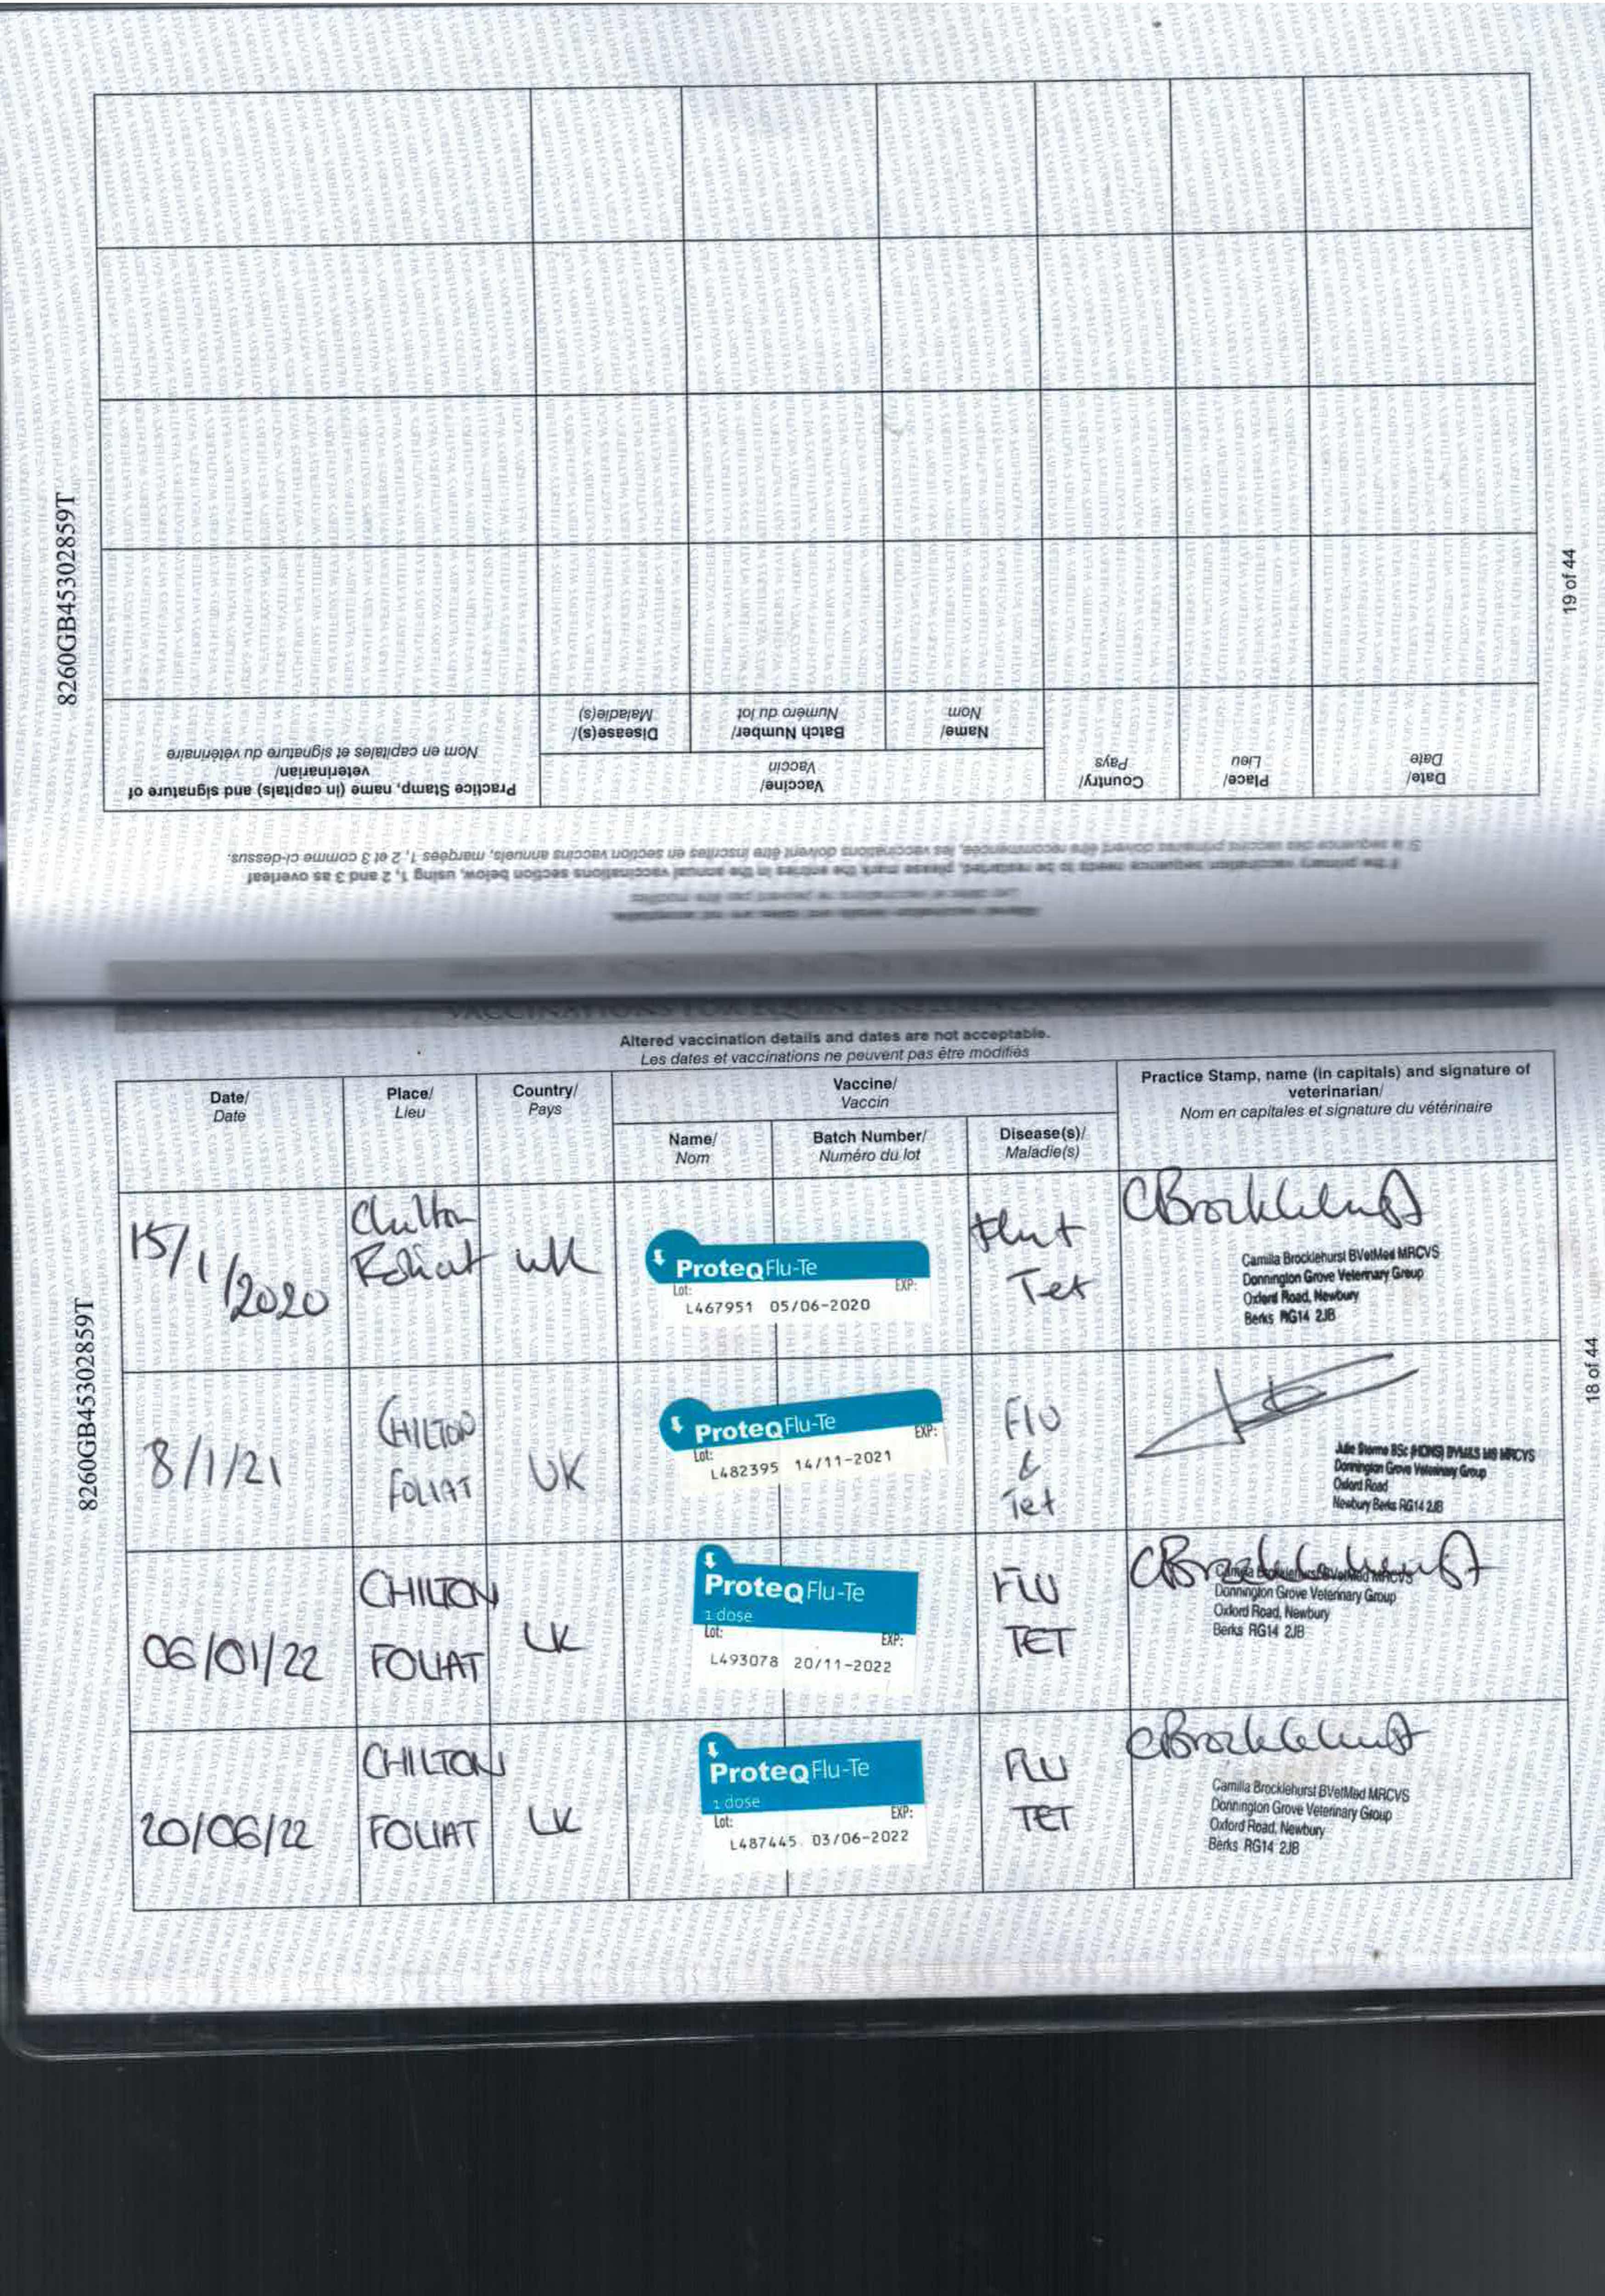 8260GB45302859T
19 of 44
Practice Stamp, name (in capitals) and signature of
veterinarian/
Nom en capitales et signature du vétérinaire
Vaccine/
Vaccin
Disease(s)/
Maladie(s)
Batch Number/
Numéro du lot
Name/
Nom
Country/
Pays
Place/
Lieu
Date/
Date
If the primary vaccination sequence needs to be restarted, please mark the entries in the annual vaccinations section below, using 1, 2 and 3 as overleaf
Si la séquence des vaccins primaires doivent être recommencées, les vaccinations doivent être inscrites en section vaccins annuels, marqées 1, 2 et 3 comme ci-dessus.
Altered vaccination details and dates are not acceptable.
Les dates et vaccinations ne peuvent pas être modifiés
8260GB45302859T
18 of 44
Date/
Date
Place/
Lieu
Country/
Pays
Vaccine/
Vaccin
Practice Stamp, name (in capitals) and signature of
veterinarian/
Nom en capitales et signature du vétérinaire
Name/
Nom
Batch Number/
Numéro du lot
Disease(s)/
Maladie(s)
15/1/2020
Chilton
Foliat
UK
ProteqFlu-Te
Lot: EXP:
L467951 05/06-2020
Flu +
Tet
CBrocklehurst
Camilla Brocklehurst BVetMed MRCVS
Donnington Grove Veterinary Group
Oxford Road, Newbury
Berks RG14 2JB
8/1/21
CHILTON
FOLIAT
UK
ProteqFlu-Te
Lot: EXP:
L482395 14/11-2021
Flu
&
Tet
Donnington Grove Veterinary Group
Oxford Road
Newbury Berks RG14 2JB
06/01/22
CHILTON
FOLIAT
UK
ProteqFlu-Te
1 dose
Lot: EXP:
L493078 20/11-2022
FLU
TET
CBrocklehurst
Camilla Brocklehurst BVetMed MRCVS
Donnington Grove Veterinary Group
Oxford Road, Newbury
Berks RG14 2JB
20/06/22
CHILTON
FOLIAT
UK
ProteqFlu-Te
1 dose
Lot: EXP:
L487445 03/06-2022
FLU
TET
CBrocklehurst
Camilla Brocklehurst BVetMed MRCVS
Donnington Grove Veterinary Group
Oxford Road, Newbury
Berks RG14 2JB